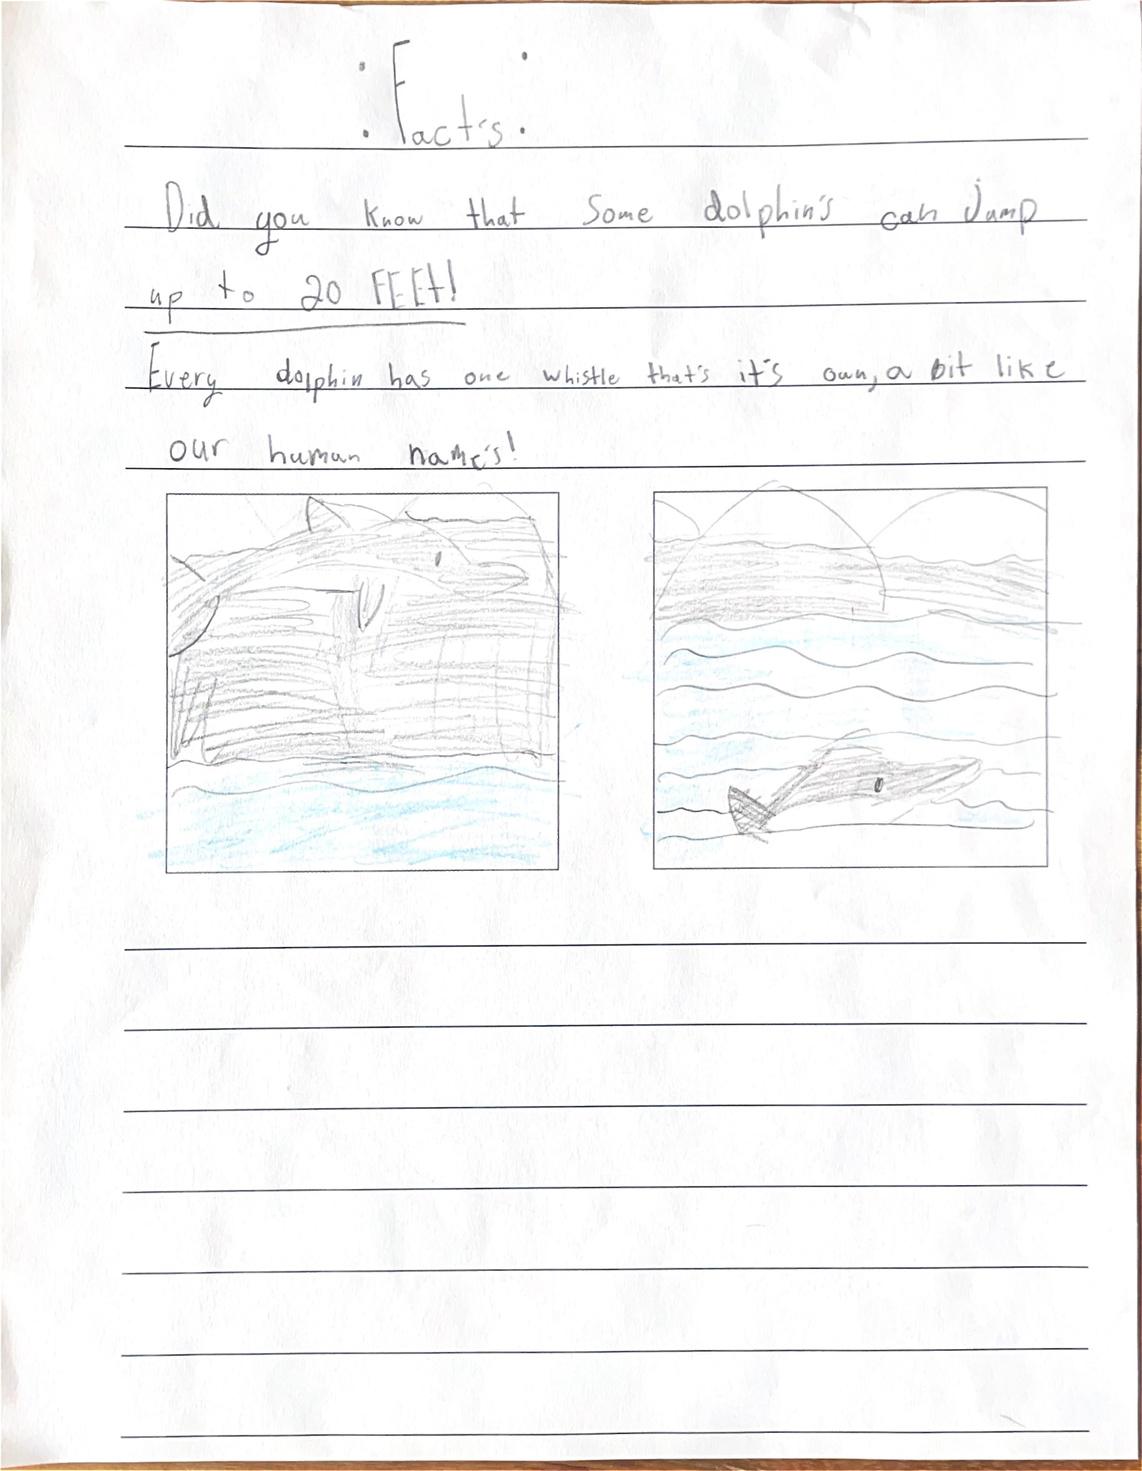 :Fact's:
Did you know that Some dolphin's can Jump
up to 20 FEEt!
Every dolphin has one whistle that's it's own, a bit like
our human name's!